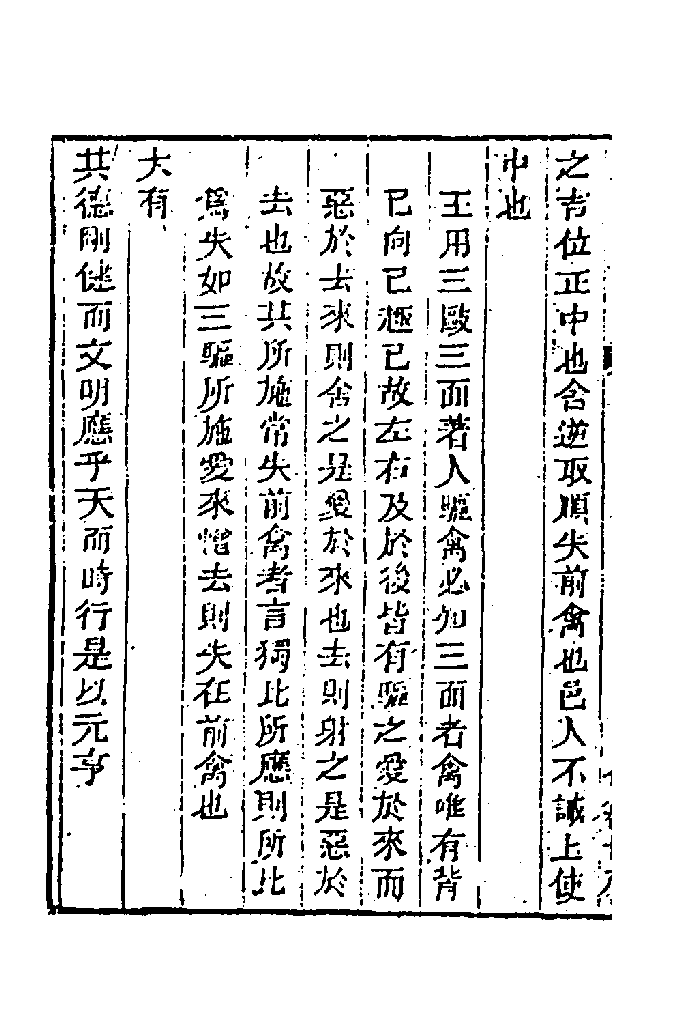 之吉位正中也舍逆取順失前禽也邑人不誡上使
中也
王用三敺三面著人驅禽必知三面者禽唯有背
已向已趣已故左右及於後皆有驅之愛於來而
惡於去來則舍之是愛於來也去則射之是惡於
去也故其所施常失前禽者言獨比所應則所比
爲失如三驅所施愛來憎去則失在前禽也
大有
其德剛健而文明應乎天而時行是以元亨